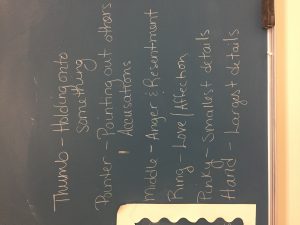 Thumb - Holding onto
something
Pointer - Pointing out others
Accusations
Middle - Anger & Resentment
Ring - Love/Affection
Pinky - Smallest details
Hand - Largest details